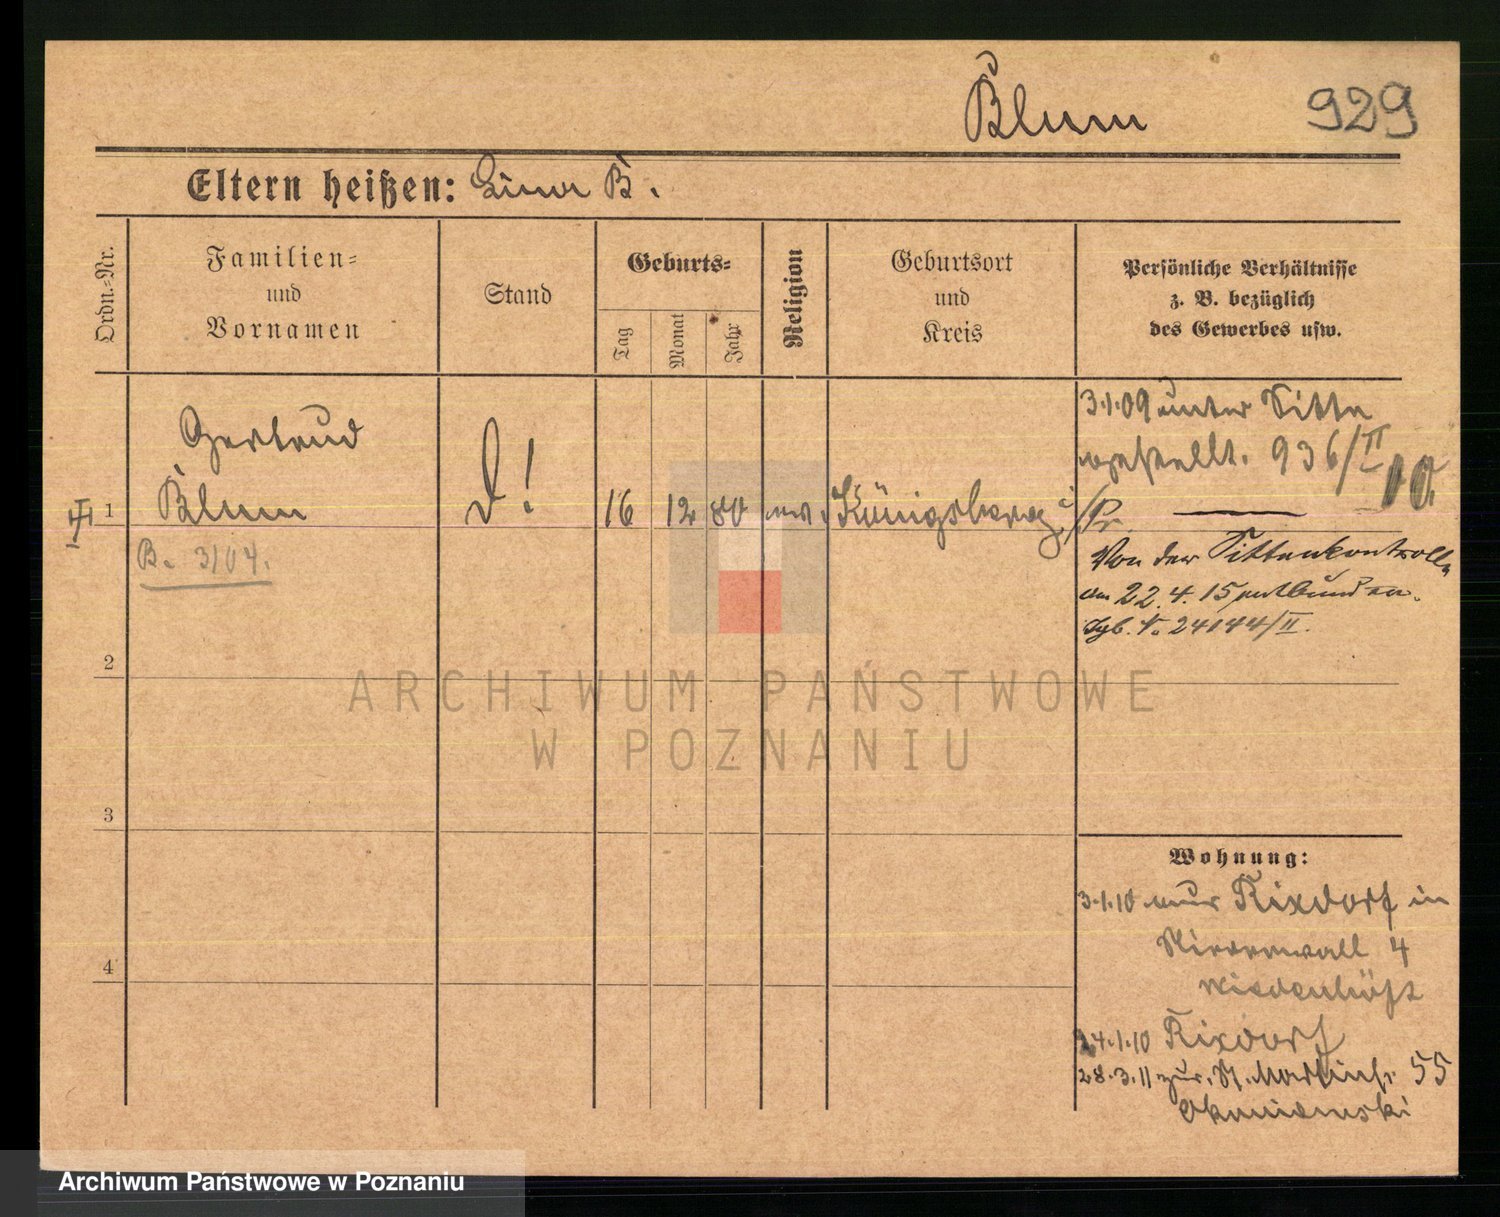 Blum 929
Eltern heißen: B.
Ordn.-Nr.
Familien-
und
Vornamen
Stand
Geburts-
Tag
Monat
Jahr
Religion
Geburtsort
und
Kreis
Persönliche Verhältnisse
z. B. bezüglich
des Gewerbes usw.
Gertrud
1 Blum D! 16 12 80 ev. Königsberg i/Pr.
B. 3/04.
3.1.09 unter Sitte
gestellt. 936/II
Von der Sittenkontrolle
am 22.4.15 entbunden.
Tgb. N. 24144/II.
2
3
4
Wohnung:
3.1.10 aus Rixdorf in
4
24.1.10 Rixdorf
28.3.11 zur. St. Martinstr. 55
ARCHIWUM PAŃSTWOWE
W POZNANIU
Archiwum Państwowe w Poznaniu